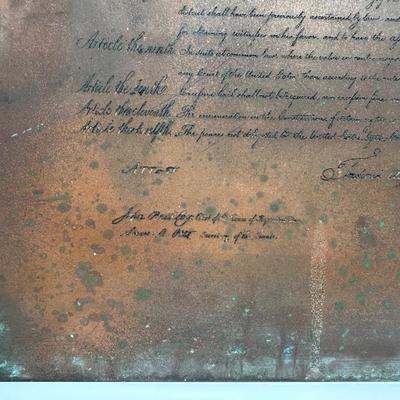 district shall have been previously ascertained by law, and
for obtaining witnesses in his favor, and to have the
Article the ninth In suits at common law, where the value in
any Court of the United States, than according to the rules
Article the tenth Excessive bail shall not be required, nor excessive fines
Article the eleventh The enumeration in the Constitution, of certain rights
Article the twelfth The powers not delegated to the United States
Attest
John Beckley, Clerk of the House of
Sam. A. Otis Secretary of the Senate.